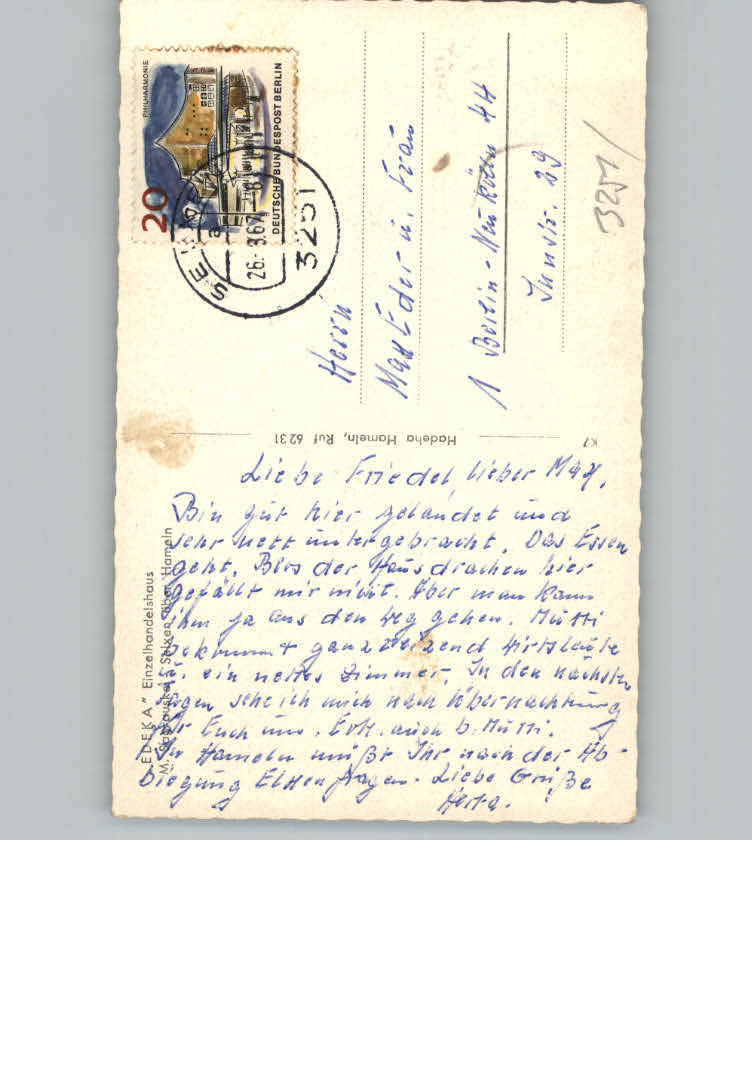 Liebe Friedel, lieber Max,
Bin gut hier gelandet und
sehr nett untergebracht. Das Essen
geht. Blos der Hausdrachen hier
gefällt mir nicht. Aber man kann
ihm ja aus den Weg gehen. Mutti
bekommt ganz reizend Wirtsleute
u. ein nettes Zimmer. In den nächsten
Tagen sehe ich mich nach Übernachtung
für Euch um. Evtl. auch b. Mutti.
In Hameln müßt Ihr nach der Ab-
biegung Eltsen fragen. Liebe Grüße
Herta.
"EDEKA" Einzelhandelshaus
Selxen über Hameln
Hadeha Hameln, Ruf 6231
K7
PHILHARMONIE
20
DEUTSCHE BUNDESPOST BERLIN
26.-8.67.-8
a
3251
Herrn
Max Eder u. Frau
1 Berlin-Neukölln 44
Innstr. 29
3251/